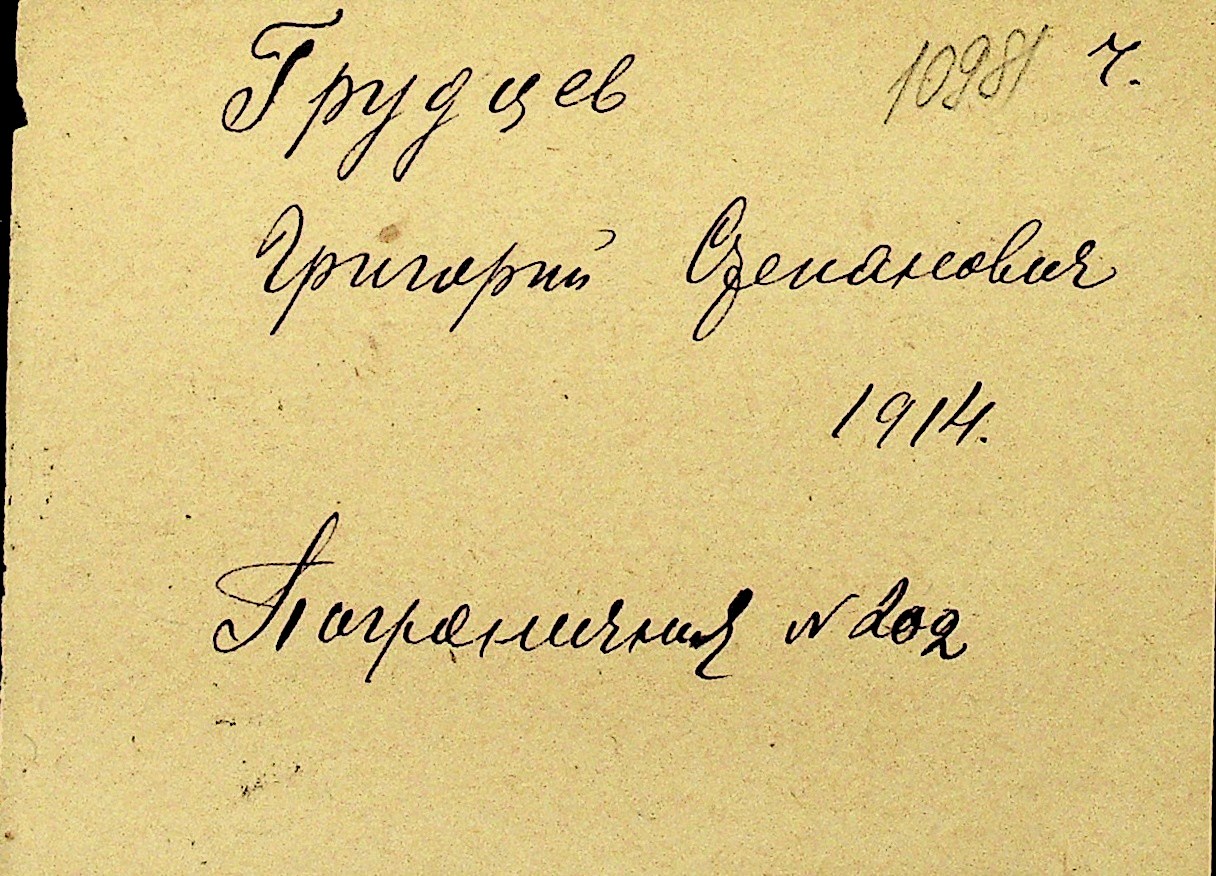 Грудцев 10981 ч.
Григорий Степанович
1914.
Пограничная № 202